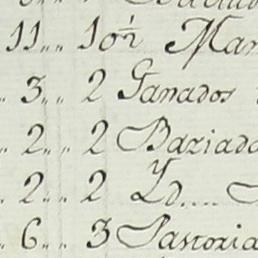 11.... 10½
.. 3.... 2 Ganados
.. 2.... 2 Baziado
.. 2.... 2 Yd....
.. 6.... 3 Pastoria